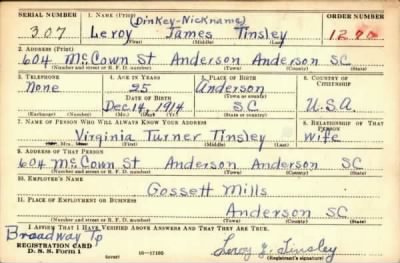 SERIAL NUMBER 1. NAME (Print) (Dinkey-Nickname) ORDER NUMBER
307 Leroy James Tinsley
(First) (Middle) (Last)
2. ADDRESS (Print)
604 McCown St Anderson Anderson S.C.
(Number and street or R. F. D. number) (Town) (County) (State)
3. TELEPHONE 4. AGE IN YEARS 5. PLACE OF BIRTH 6. COUNTRY OF CITIZENSHIP
None 25 Anderson
DATE OF BIRTH (Town or county)
Dec 14, 1914 S.C U.S.A.
(Exchange) (Number) (Mo.) (Day) (Yr.) (State or country)
7. NAME OF PERSON WHO WILL ALWAYS KNOW YOUR ADDRESS 8. RELATIONSHIP OF THAT PERSON
Virginia Turner Tinsley Wife
(First) (Middle) (Last)
9. ADDRESS OF THAT PERSON
604 McCown St Anderson Anderson SC
(Number and street or R. F. D. number) (Town) (County) (State)
10. EMPLOYER'S NAME
Gossett Mills
11. PLACE OF EMPLOYMENT OR BUSINESS
Anderson SC
(Number and street or R. F. D. number) (Town) (County) (State)
I AFFIRM THAT I HAVE VERIFIED ABOVE ANSWERS AND THAT THEY ARE TRUE.
Broadway Tp
REGISTRATION CARD
D. S. S. Form 1 (over) 16-17105 (Registrant's signature)
Leroy J. Tinsley